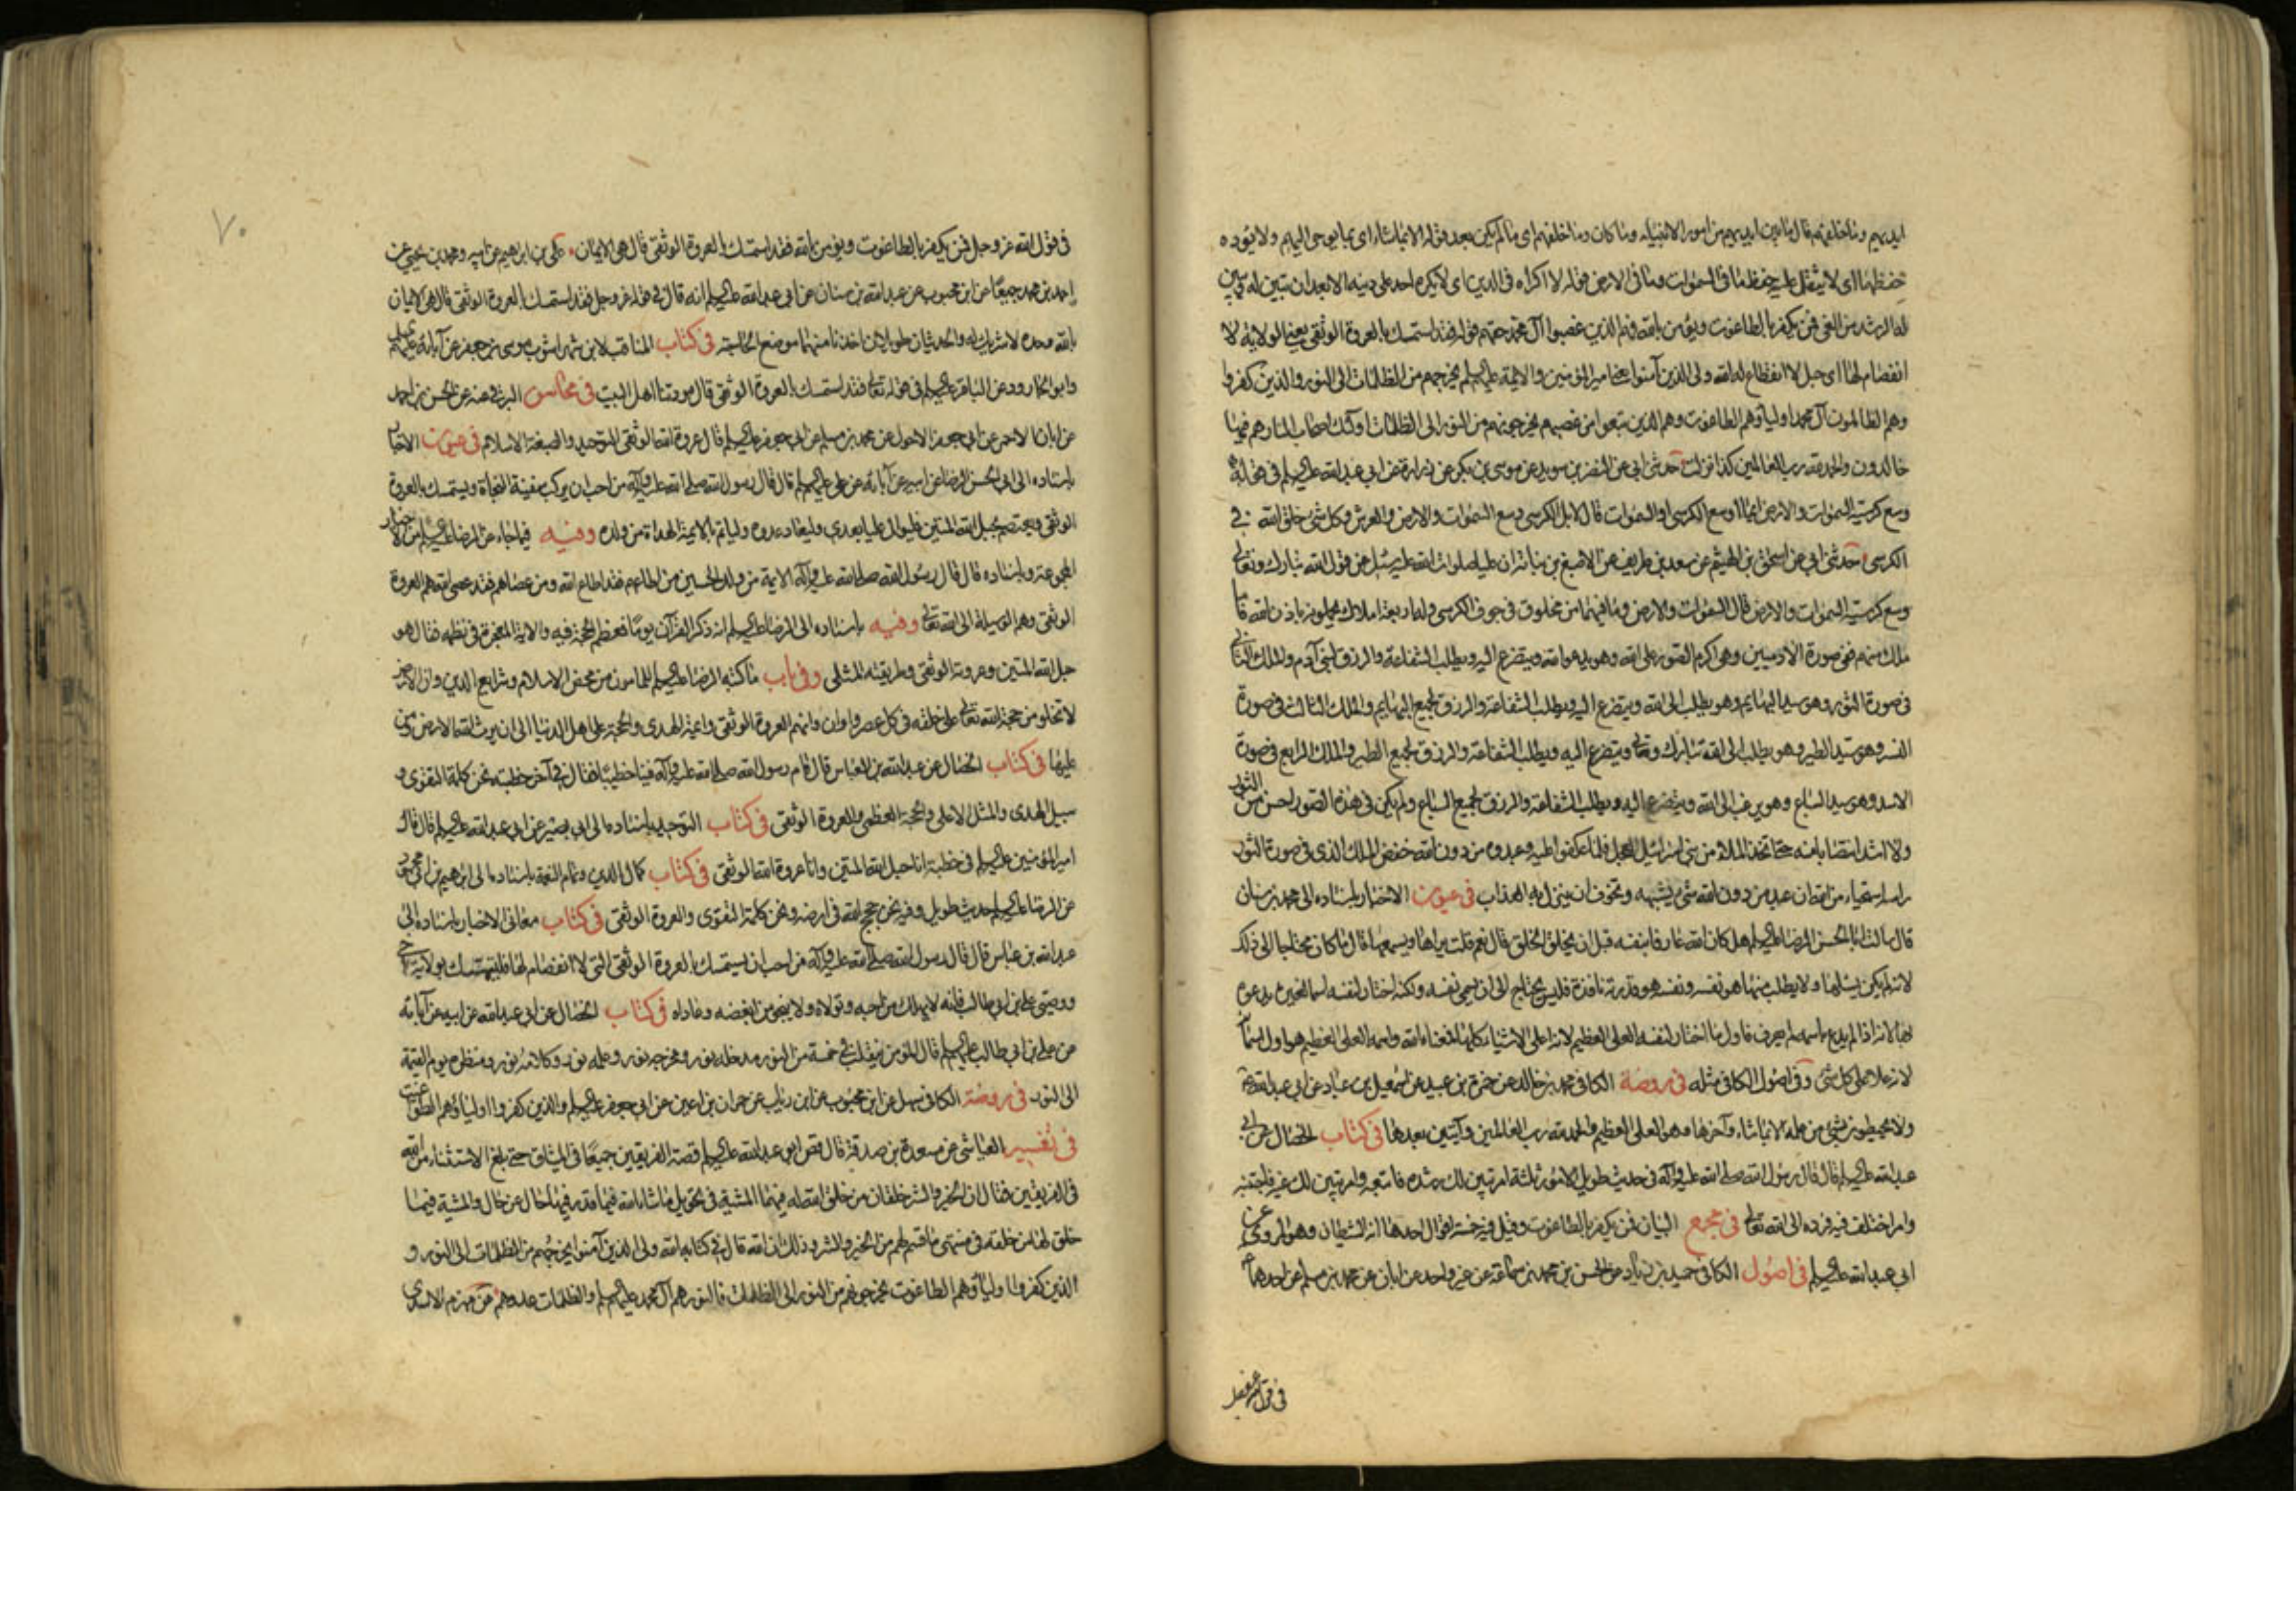 ايديهم وما خلفهم قال ما بين ايديهم من امور الانبياء وما كان وما خلفهم اى ما لم يكن بعد قوله الا بما شاء اى بما يوحى اليهم ولا يؤده
حفظهما اى لا يثقل عليه حفظ ما فى السموات وما فى الارض قوله لا اكراه فى الدين اى لا يكره احد على دينه الا بعد ان تبين له
الرشد من الغى فمن يكفر بالطاغوت ويؤمن بالله فهم الذين غصبوا آل محمد حقهم قوله فقد استمسك بالعروة الوثقى يعنى الولاية لا
انفصام لها اى حبل لا انقطاع له الله ولى الذين آمنوا يعنى امير المؤمنين والائمة عليهم السلم يخرجهم من الظلمات الى النور والذين كفروا
وهم الظالمون آل محمد اولياؤهم الطاغوت وهم الذين تبعوا من غصبهم يخرجونهم من النور الى الظلمات اولئك اصحاب النار هم فيها
خالدون والحمد لله رب العالمين كذا نزلت حدثنى ابى عن النضر بن سويد عن موسى بن بكر عن زرارة عن ابى عبد الله عليه السلم فى قوله
وسع كرسيه السموات والارض ايما اوسع الكرسى او السموات قال لا بل الكرسى وسع السموات والارض والعرش وكل شئ خلق الله فى
الكرسى حدثنى ابى عن اسحق بن الهيثم عن سعد بن طريف عن الاصبغ بن نباتة ان عليا صلوات الله عليه سئل عن قول الله تبارك وتعالى
وسع كرسيه السموات والارض قال السموات والارض وما فيهما من مخلوق فى جوف الكرسى وله اربعة املاك يحملونه باذن الله فاما
ملك منهم ففى صورة الآدميين وهى اكرم الصور على الله وهو يدعو الله ويتضرع اليه ويطلب الشفاعة والرزق لبنى آدم والملك الثانى
فى صورة الثور وهو سيد البهايم وهو يطلب الى الله ويتضرع اليه ويطلب الشفاعة والرزق لجميع البهايم والملك الثالث فى صورة
النسر وهو سيد الطير وهو يطلب الى الله تبارك وتعالى ويتضرع اليه ويطلب الشفاعة والرزق لجميع الطير والملك الرابع فى صورة
الاسد وهو سيد السباع وهو يرغب الى الله ويتضرع اليه ويطلب الشفاعة والرزق لجميع السباع ولم يكن فى هذه الصور احسن من الثور
ولا اشد انتصابا منه حتى اتخذ الملأ من بنى اسرائيل العجل فلما عكفوا عليه وعبدوه من دون الله خفض الملك الذى فى صورة الثور
راسه استحياء من الله ان عبد من دون الله شئ يشبهه وتخوف ان ينزل به العذاب فى عيون الاخبار باسناده الى محمد بن سنان
قال سالت ابا الحسن الرضا عليه السلم هل كان الله عارفا بنفسه قبل ان يخلق الخلق قال نعم قلت يراها ويسمعها قال ما كان محتاجا الى ذلك
لانه لم يكن يسئلها ولا يطلب منها هو نفسه ونفسه هو قدرته نافذة فليس يحتاج الى ان يسمى نفسه ولكنه اختار لنفسه اسما لغيره يدعوه
بها لانه اذا لم يدع باسمه لم يعرف فاول ما اختار لنفسه العلى العظيم لانه اعلى الاشياء كلها فمعناه الله واسمه العلى العظيم هو اول اسماء
لانه علا على كل شئ وفى اصول الكافى مثله فى روضة الكافى محمد بن خالد عن حمزة بن عبيد عن اسمعيل بن عباد عن ابى عبد الله
ولا يحيطون بشئ من علمه الا بما شاء وآخرها وهو العلى العظيم والحمد لله رب العالمين وآيتين بعدها فى كتاب الخصال عن ابى
عبد الله عليه السلم قال قال رسول الله صلى الله عليه وآله فى حديث طويل الامور ثلثة امر تبين لك رشده فاتبعه وامر تبين لك غيه فاجتنبه
وامر اختلف فيه فرده الى الله تعالى فى مجمع البيان فمن يكفر بالطاغوت وقيل فيه خمسة اقوال احدها انه الشيطان وهو المروى عن
ابى عبد الله عليه السلم فى اصول الكافى حميد بن زياد عن الحسن بن محمد بن سماعة عن غير واحد عن ابان عن محمد بن مسلم عن احدهما
فى قول الله عز وجل
٧٠
فى قول الله عز وجل فمن يكفر بالطاغوت ويؤمن بالله فقد استمسك بالعروة الوثقى قال هى الايمان على بن ابراهيم عن ابيه ومحمد بن يحيى عن
احمد بن محمد جميعا عن ابن محبوب عن عبد الله بن سنان عن ابى عبد الله عليه السلم انه قال فى قوله عز وجل فقد استمسك بالعروة الوثقى قال هى الايمان
بالله وحده لا شريك له والحديثان طويلان اخذنا منهما موضع الحاجة فى كتاب المناقب لابن شهر اشوب موسى بن جعفر عن آبائه عليهم السلم
وابو الجارود عن الباقر عليه السلم فى قوله تعالى فقد استمسك بالعروة الوثقى قال مودتنا اهل البيت فى محاسن البرقى عنه عن الحسن بن احمد
عن ابان الاحمر عن ابى جعفر الاحول عن محمد بن مسلم عن ابى جعفر عليه السلم قال عروة الله الوثقى التوحيد والصبغة الاسلام فى عيون الاخبار
باسناده الى ابى الحسن الرضا عن ابيه عن آبائه عن على عليهم السلم قال قال رسول الله صلى الله عليه وآله من احب ان يركب سفينة النجاة ويستمسك بالعروة
الوثقى ويعتصم بحبل الله المتين فليوال عليا بعدى وليعاد عدوه وليأتم بالائمة الهداة من ولده وفيه فيما جاء عن الرضا عليه السلم من الاخبار
المجموعة وباسناده قال قال رسول الله صلى الله عليه وآله الائمة من ولد الحسين من اطاعهم فقد اطاع الله ومن عصاهم فقد عصى الله هم العروة
الوثقى وهم الوسيلة الى الله تعالى وفيه باسناده الى الرضا عليه السلم انه ذكر القرآن يوما فعظم الحجة فيه والآية المعجزة فى نظمه فقال هو
حبل الله المتين وعروته الوثقى وطريقته المثلى وفى باب ما كتبه الرضا عليه السلم للمامون من محض الاسلام وشرايع الدين وان الارض
لا تخلو من حجة الله تعالى على خلقه فى كل عصر واوان وانهم العروة الوثقى وائمة الهدى والحجة على اهل الدنيا الى ان يرث الله الارض ومن
عليها فى كتاب الخصال عن عبد الله بن العباس قال قام رسول الله صلى الله عليه وآله فينا خطيبا فقال فى آخر خطبته نحن كلمة التقوى و
سبيل الهدى والمثل الاعلى والحجة العظمى والعروة الوثقى فى كتاب التوحيد باسناده الى ابى بصير عن ابى عبد الله عليه السلم قال قال
امير المؤمنين عليه السلم فى خطبته انا حبل الله المتين وانا عروة الله الوثقى فى كتاب كمال الدين وتمام النعمة باسناده الى ابراهيم بن ابى محمود
عن الرضا عليه السلم حديث طويل وفيه نحن حجج الله فى ارضه ونحن كلمة التقوى والعروة الوثقى فى كتاب معانى الاخبار باسناده الى
عبد الله بن عباس قال قال رسول الله صلى الله عليه وآله من احب ان يستمسك بالعروة الوثقى التى لا انفصام لها فليتمسك بولاية اخى
ووصيى على بن ابى طالب فانه لا يهلك من احبه وتولاه ولا ينجو من ابغضه وعاداه فى كتاب الخصال عن ابى عبد الله عن ابيه عن آبائه
عن على بن ابى طالب عليهم السلم قال المؤمن يتقلب فى خمسة من النور مدخله نور ومخرجه نور وعلمه نور وكلامه نور ومنظره يوم القيمة
الى النور فى روضة الكافى سهل عن ابن محبوب عن ابن رئاب عن حمران بن اعين عن ابى جعفر عليه السلم والذين كفروا اولياؤهم الطواغيت
فى تفسير العياشى عن مسعدة بن صدقة قال قص ابو عبد الله عليه السلم قصة الفريقين جميعا فى الميثاق حتى بلغ الاستثناء من الله
فى الفريقين فقال ان الخير والشر خلقان من خلق الله له فيهما المشية فى تحويل ما شاء الله فيما قدر فيهما حال عن حال والمشية فيما
خلق لهما من خلقه فى منتهى ما قسم لهم من الخير والشر وذلك ان الله قال فى كتابه الله ولى الذين آمنوا يخرجهم من الظلمات الى النور و
الذين كفروا اولياؤهم الطاغوت يخرجونهم من النور الى الظلمات فالنور هم آل محمد عليهم السلم والظلمات عدوهم عن مهزم الاسدى